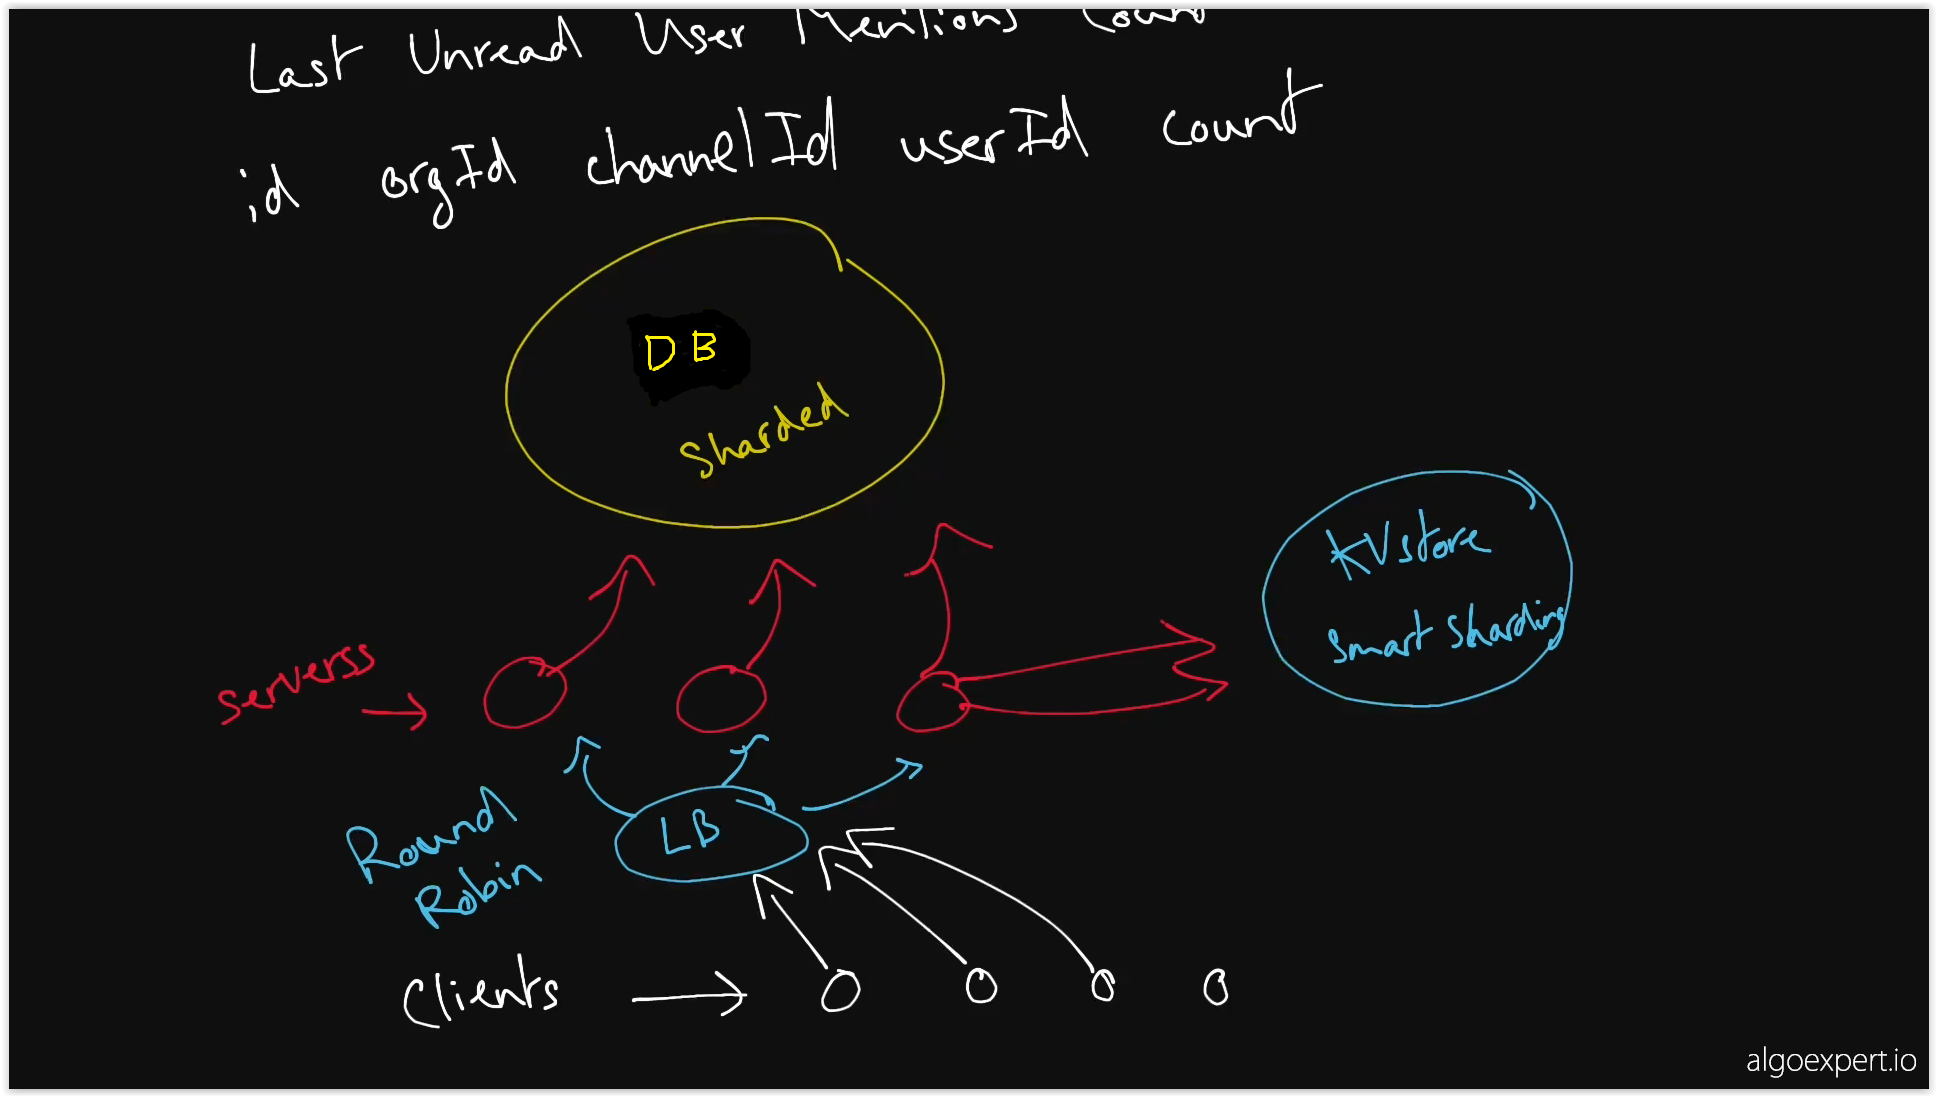 Last Unread User Mentions Count
id orgId channelId userId count
DB
Sharded
KVstore
Smart Sharding
serverss
LB
Round
Robin
Clients
algoexpert.io